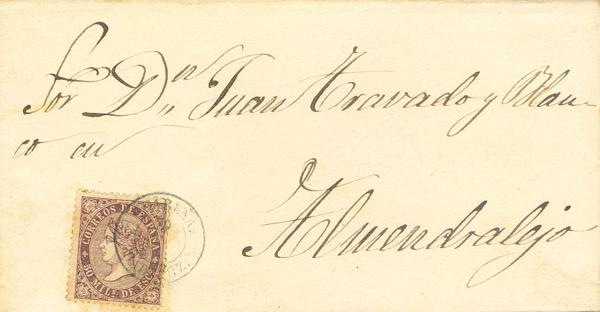 Sor Dn Juan Travado y Blan-
co en
Almendralejo
CORREOS DE ESPAÑA
50 MILS. DE ESCO.